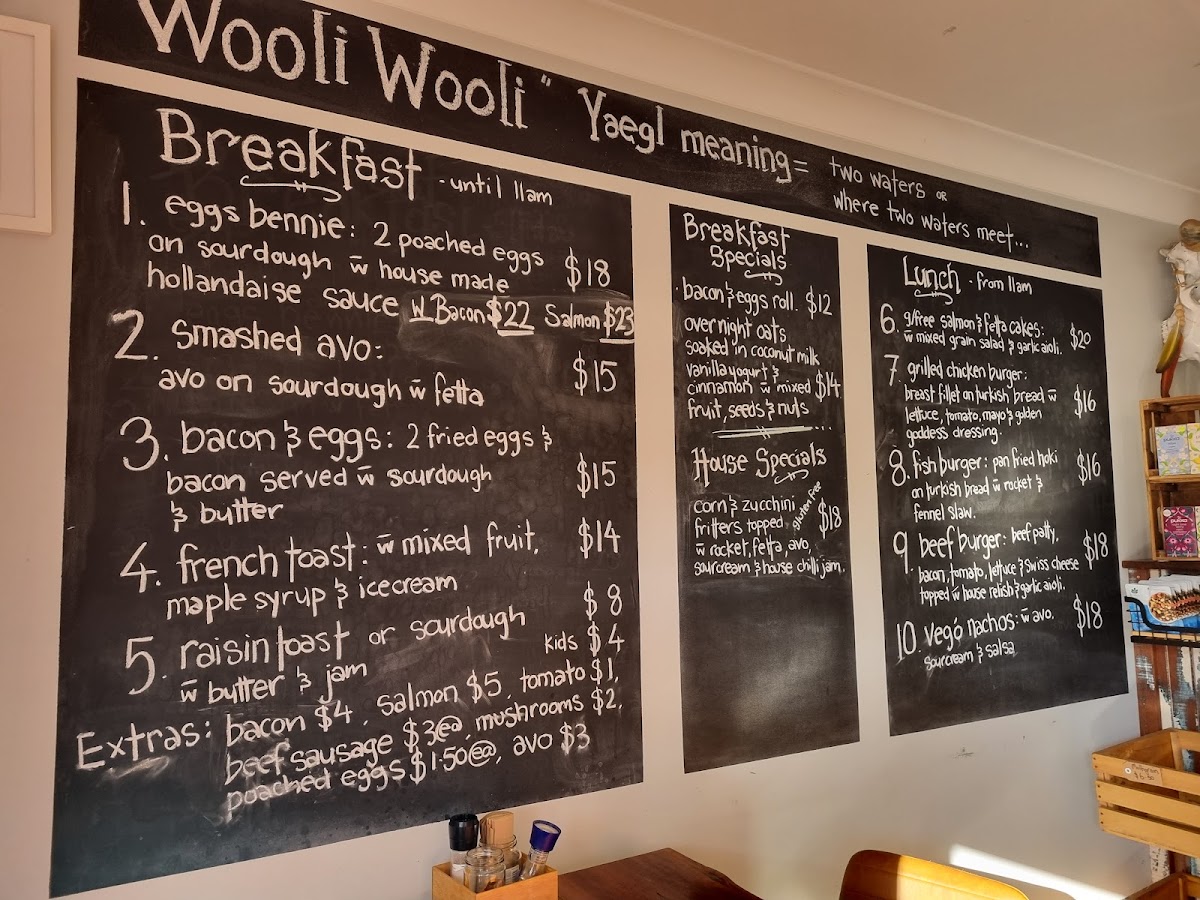 Wooli Wooli" Yaegl meaning= two waters or
where two waters meet...
Breakfast - until 11am
1. eggs bennie: 2 poached eggs
on sourdough w̄ house made $18
hollandaise sauce w Bacon $22 Salmon $23
2. smashed avo:
avo on sourdough w̄ fetta $15
3. bacon & eggs: 2 fried eggs &
bacon served w̄ sourdough $15
& butter
4. french toast: w̄ mixed fruit, $14
maple syrup & icecream
5. raisin toast or sourdough $8
w̄ butter & jam kids $4
Extras: bacon $4, salmon $5, tomato $1,
beef sausage $3@, mushrooms $2,
poached eggs $1.50@, avo $3
Breakfast
Specials
bacon & eggs roll. $12
over night oats
soaked in coconut milk
vanilla yogurt &
cinnamon w̄ mixed $14
fruit, seeds & nuts
House Specials
corn & zucchini
fritters topped gluten free $18
w̄ rocket, fetta, avo,
sourcream & house chilli jam.
Lunch - from 11am
6. g/free salmon & fetta cakes: $20
w̄ mixed grain salad & garlic aioli.
7 grilled chicken burger:
breast fillet on turkish bread w̄ $16
lettuce, tomato, mayo & golden
goddess dressing.
8. fish burger: pan fried hoki $16
on turkish bread w̄ rocket &
fennel slaw.
9. beef burger: beef patty, $18
bacon, tomato, lettuce & swiss cheese
topped w̄ house relish & garlic aioli.
10. vegó nachos: w̄ avo. $18
sourcream & salsa